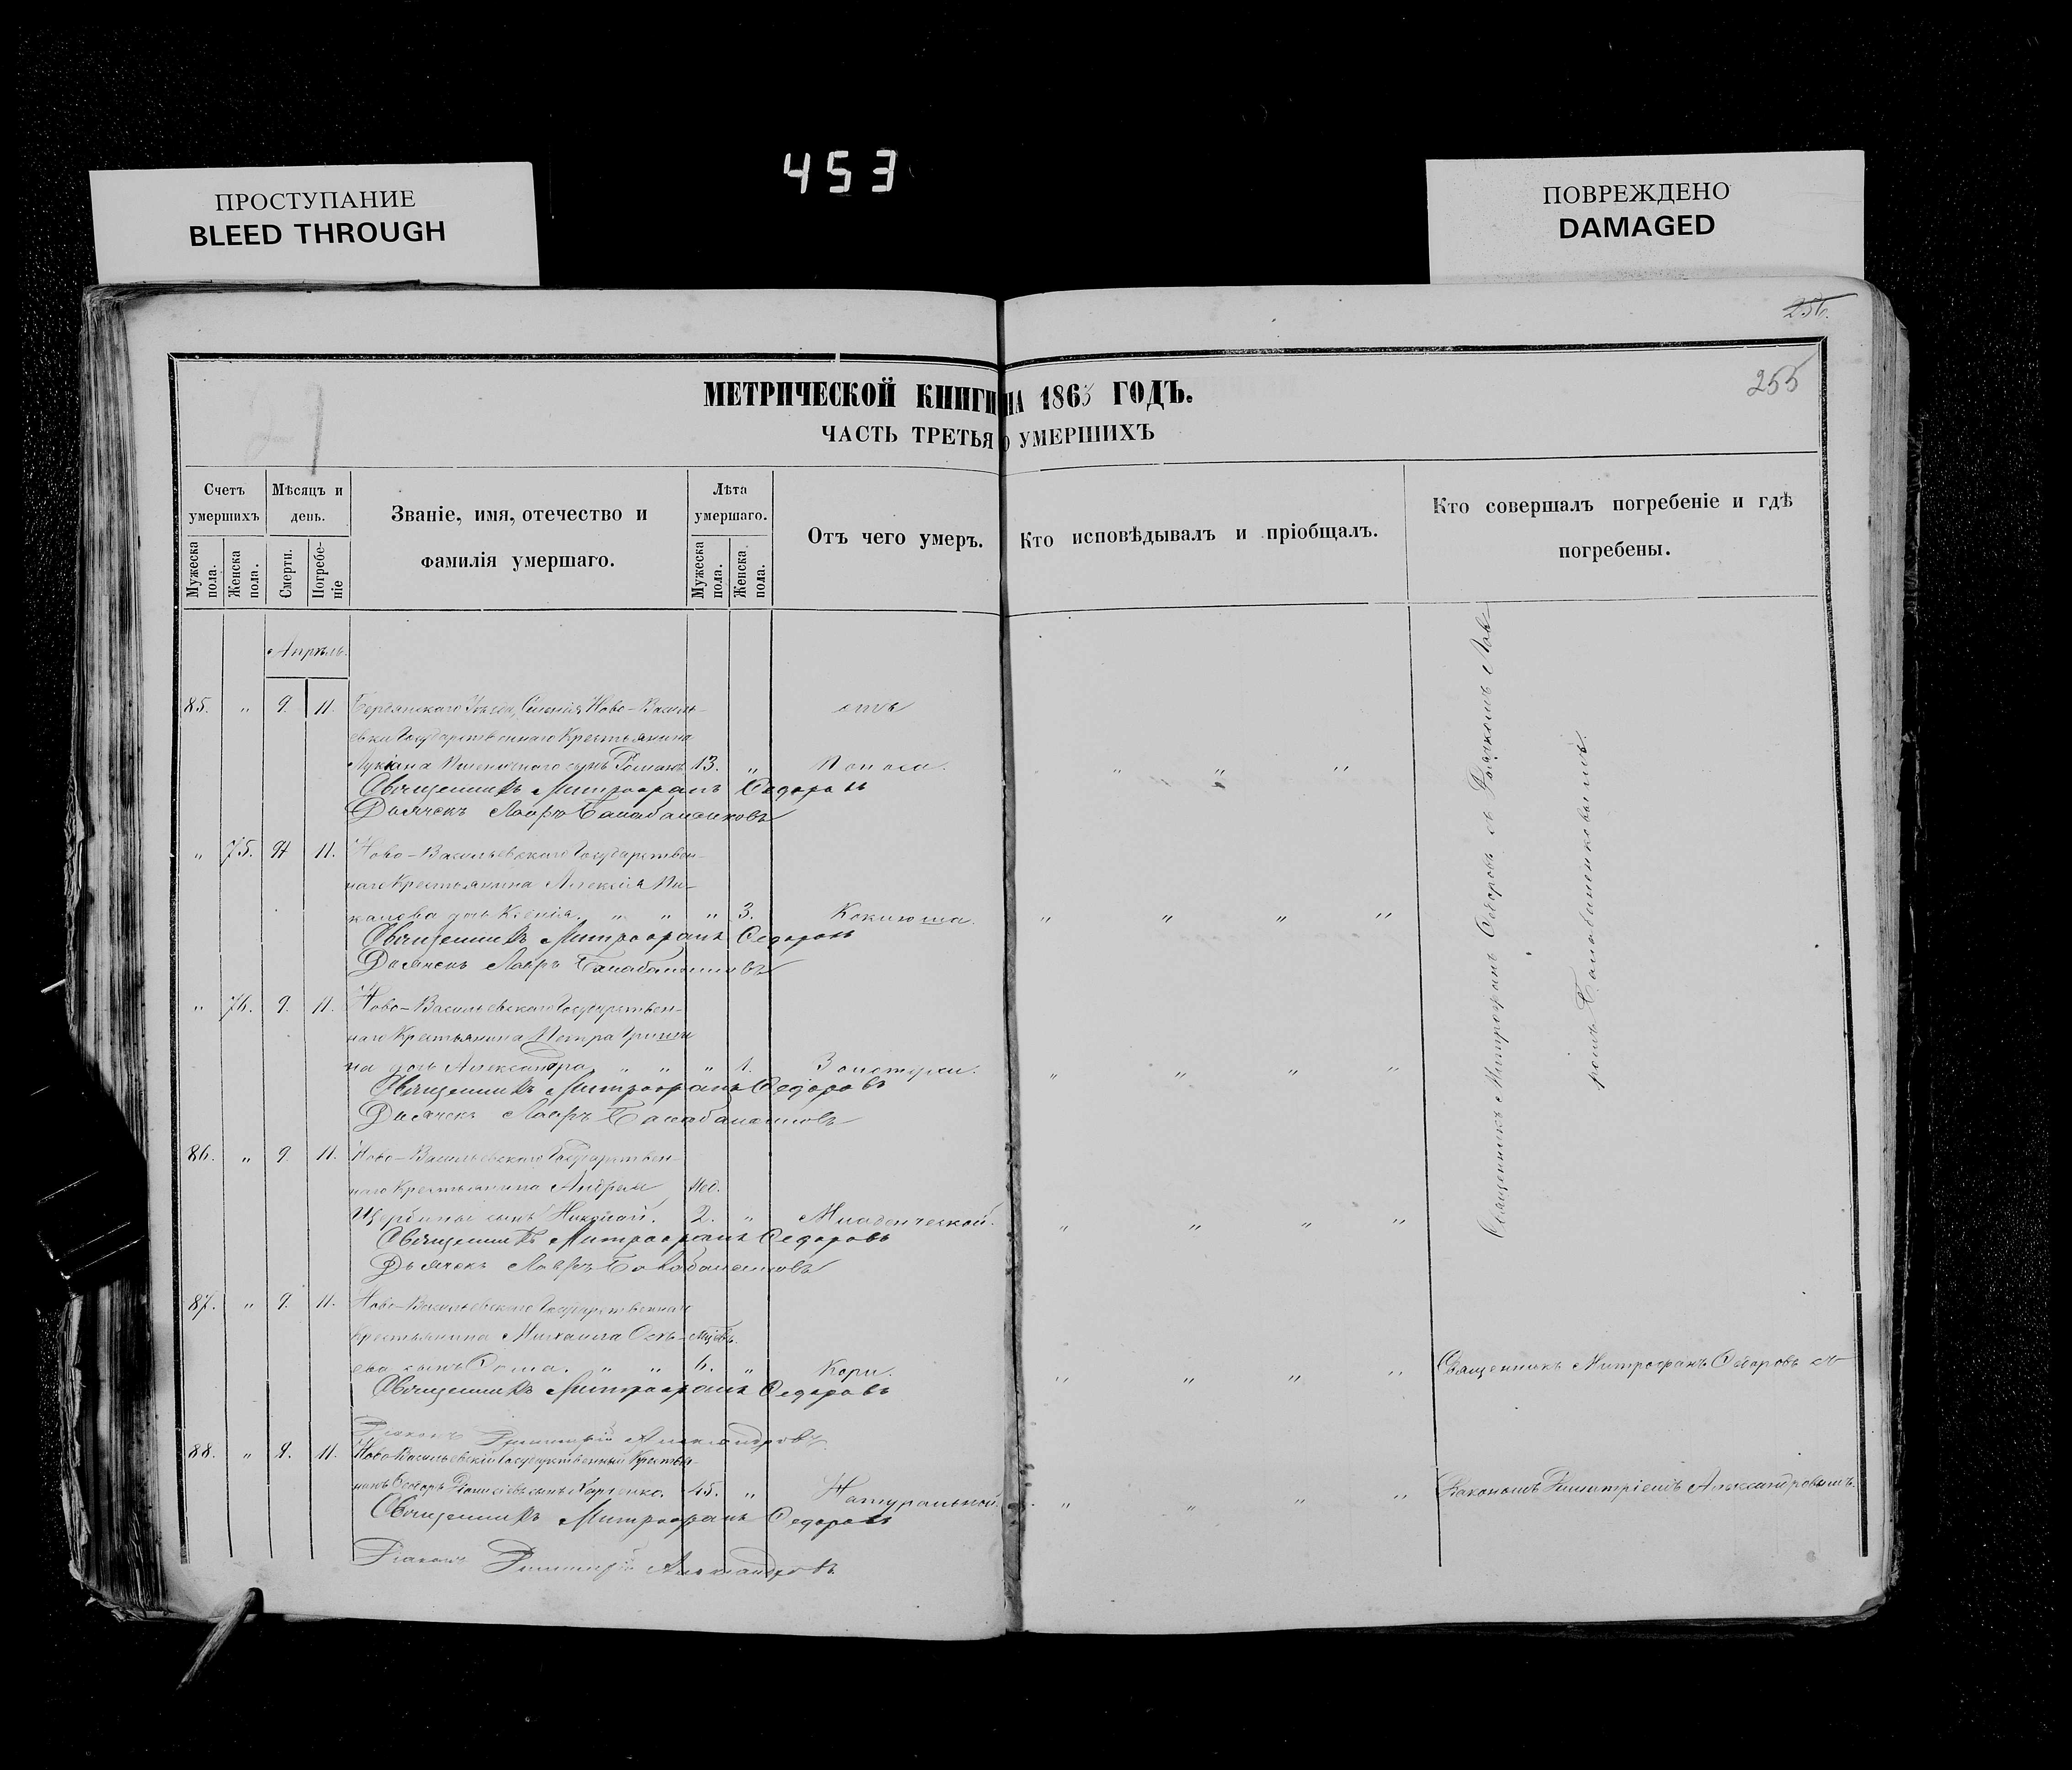 453
ПРОСТУПАНИЕ
BLEED THROUGH
ПОВРЕЖДЕНО
DAMAGED
256.
255
МЕТРИЧЕСКОЙ КНИГИ НА 1863 ГОДЪ.
ЧАСТЬ ТРЕТЬЯ О УМЕРШИХЪ
Счетъ умершихъ
Мужеска пола.
Женска пола.
Мѣсяцъ и день.
Смерти.
Погребеніе
Званіе, имя, отечество и фамилія умершаго.
Лѣта умершаго.
Мужеска пола.
Женска пола.
Отъ чего умеръ.
Кто исповѣдывалъ и пріобщалъ.
Кто совершалъ погребеніе и гдѣ погребены.
Апрѣль.
85. " 9. 11. Бердянскаго Уѣзда, Селенія Ново-Василь- отъ
евки Государственнаго Крестьянина
Лукіана сынъ Романъ 13. " Поноса. " " "
Священникъ Митрофанъ Федоровъ
Дьячекъ Лавръ Балабаненковъ
" 75. 9 11. Ново-Васильевскаго Государствен-
наго Крестьянина Алексія
дочь Ксенія. " " " 3. Коклюша. " " " "
Священникъ Митрофанъ Федоровъ
Дьячекъ Лавръ Балабаненковъ
" 76. 9. 11. Ново-Васильевскаго Государствен-
наго Крестьянина Петра Гриши
на дочь Александра " " " 1. Золотухи. " " " "
Священникъ Митрофанъ Федоровъ
Дьячекъ Лавръ Балабаненковъ
86. " 9. 11. Ново-Васильевскаго Государствен-
наго Крестьянина Андрея Нед.
Щербины сынъ Николай. 2. " Младенческой. " " " "
Священникъ Митрофанъ Федоровъ
Дьячекъ Лавръ Балабаненковъ
Священникъ Митрофанъ Федоровъ съ Дьячкомъ Лав-
ромъ Балабаненковымъ.
87. " 9. 11. Ново-Васильевскаго Государственнаго
Крестьянина Михаила
сынъ Фома. " " 6. " Кори. " " " " Священникъ Митрофанъ Федоровъ съ
Священникъ Митрофанъ Федоровъ
Діаконъ Димитрій Александровъ
88. " 9. 11. Ново-Васильевскій Государственный Крестья-
нинъ Федоръ сынъ Харченко. 45. " Натуральной. " " " " Діакономъ Димитріемъ Александровымъ.
Священникъ Митрофанъ Федоровъ
Діаконъ Димитрій Александровъ